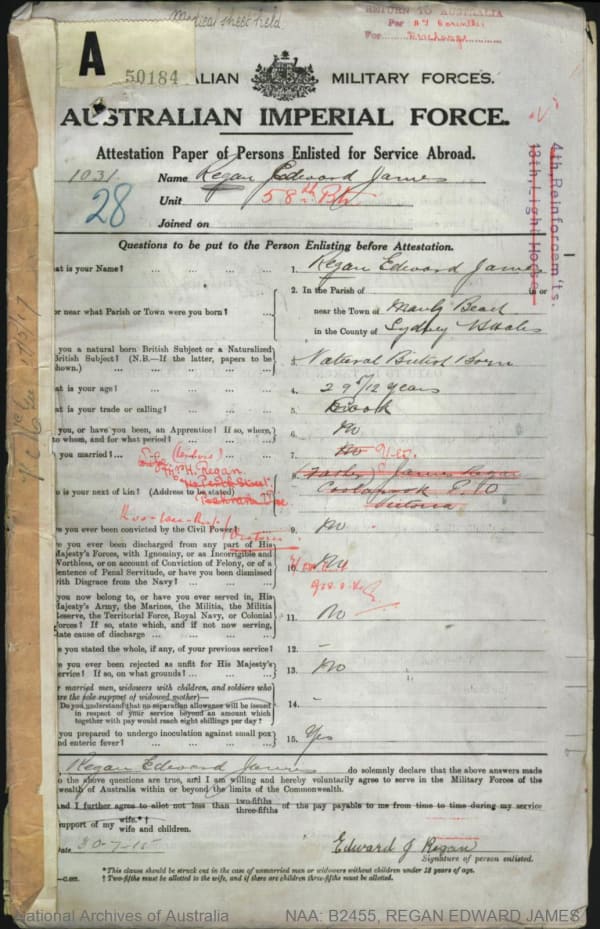 Medical sheet held
RETURN TO AUSTRALIA
Per
For
A
50184
ALIAN MILITARY FORCES.
AUSTRALIAN IMPERIAL FORCE.
Attestation Paper of Persons Enlisted for Service Abroad.
1031. Name Regan Edward James
28
Unit 58th Bn
Joined on
4th Reinforcem'ts.
13th Light Horse
Questions to be put to the Person Enlisting before Attestation.
at is your Name? ... ... ... ... 1. Regan Edward James
2. In the Parish of or
or near what Parish or Town were you born? ... near the Town of Manly Beach
in the County of Sydney
you a natural born British Subject or a Naturalized
British Subject? (N.B.—If the latter, papers to be
hown.) ... ... ... 3. Natural British Born
at is your age? ... ... ... ... 4. 29 5/12 years
at is your trade or calling? ... ... ... 5. Cook
you, or have you been, an Apprentice? If so, where,
to whom, and for what period? ... ... 6. No
you married? ... 7. No
Regan
o is your next of kin? (Address to be stated) 8. (Father) James Regan
P.O
Victoria
ve you ever been convicted by the Civil Power? 9. No
ve you ever been discharged from any part of His
Majesty's Forces, with Ignominy, or as Incorrigible and
Worthless, or on account of Conviction of Felony, or of a
Sentence of Penal Servitude, or have you been dismissed
with Disgrace from the Navy? ... ... 10. No
you now belong to, or have you ever served in, His
Majesty's Army, the Marines, the Militia, the Militia
Reserve, the Territorial Force, Royal Navy, or Colonial
Forces? If so, state which, and if not now serving,
state cause of discharge ... ... ... 11. No
e you stated the whole, if any, of your previous service? 12. -
e you ever been rejected as unfit for His Majesty's
Service? If so, on what grounds? ... ... 13. No
r married men, widowers with children, and soldiers who
are the sole support of widowed mother)—
Do you understand that no separation allowance will be issued
in respect of your service beyond an amount which
together with pay would reach eight shillings per day? 14. -
you prepared to undergo inoculation against small pox
and enteric fever? ... ... ... 15. Yes
Regan Edward James do solemnly declare that the above answers made
o the above questions are true, and I am willing and hereby voluntarily agree to serve in the Military Forces of the
wealth of Australia within or beyond the limits of the Commonwealth.
And I further agree to allot not less than two-fifths three-fifths of the pay payable to me from time to time during my service
support of my wife.*† wife and children.
ate 30-7-15
Edward J Regan
Signature of person enlisted.
* This clause should be struck out in the case of unmarried men or widowers without children under 18 years of age.
† Two-fifths must be allotted to the wife, and if there are children three-fifths must be allotted.
National Archives of Australia NAA: B2455, REGAN EDWARD JAMES